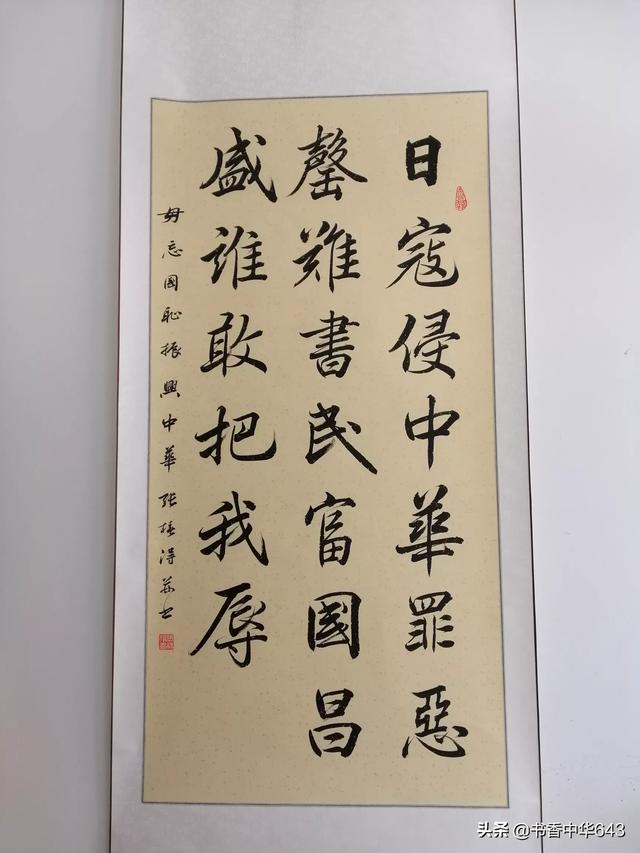 日寇侵中華罪惡
罄難書民富國昌
盛誰敢把我辱
毋忘國恥振興中華 張 得 并书
头条 @书香中华643